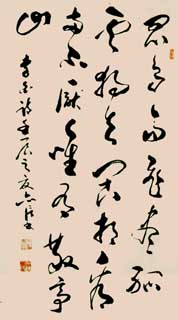 众鸟高飞尽孤
云独去闲相看
两不厌唯有敬亭
山
李白诗壬辰之夏